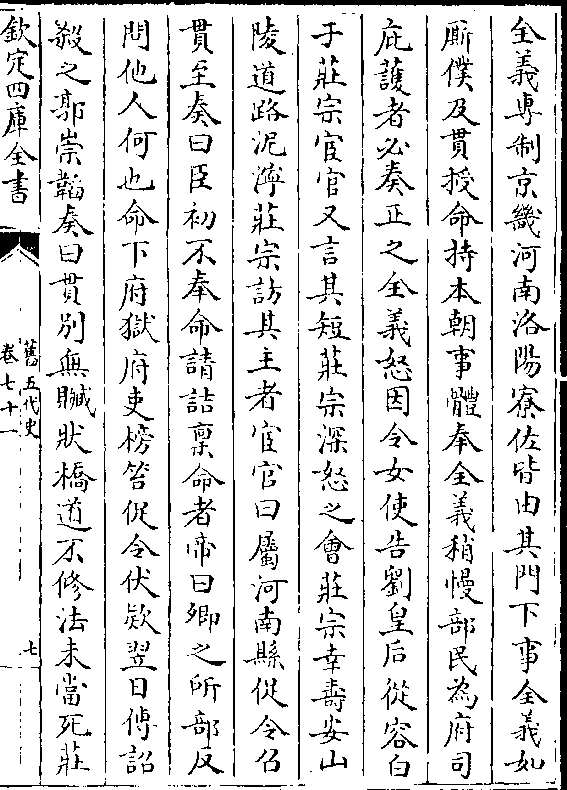 全義專制京畿河南洛陽寮佐皆由其門下事全義如
厮僕及貫授命持本朝事體奉全義稍慢部民為府司
庇護者必奏正之全義怒因令女使告劉皇后從容白
于莊宗宦官又言其短莊宗深怒之會莊宗幸壽安山
陵道路泥濘莊宗訪其主者宦官曰屬河南縣促令召
貫至奏曰臣初不奉命請詰禀命者帝曰卿之所部反
問他人何也命下府獄府吏榜笞促令伏欵翌日傳詔
殺之郭崇韜奏曰貫別無贓狀橋道不修法未當死莊
欽定四庫全書
舊五代史
卷七十一
七